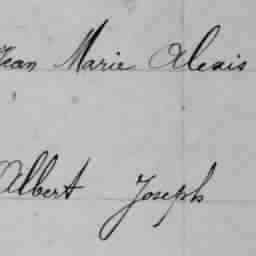 Jean Marie Alexis
Albert Joseph